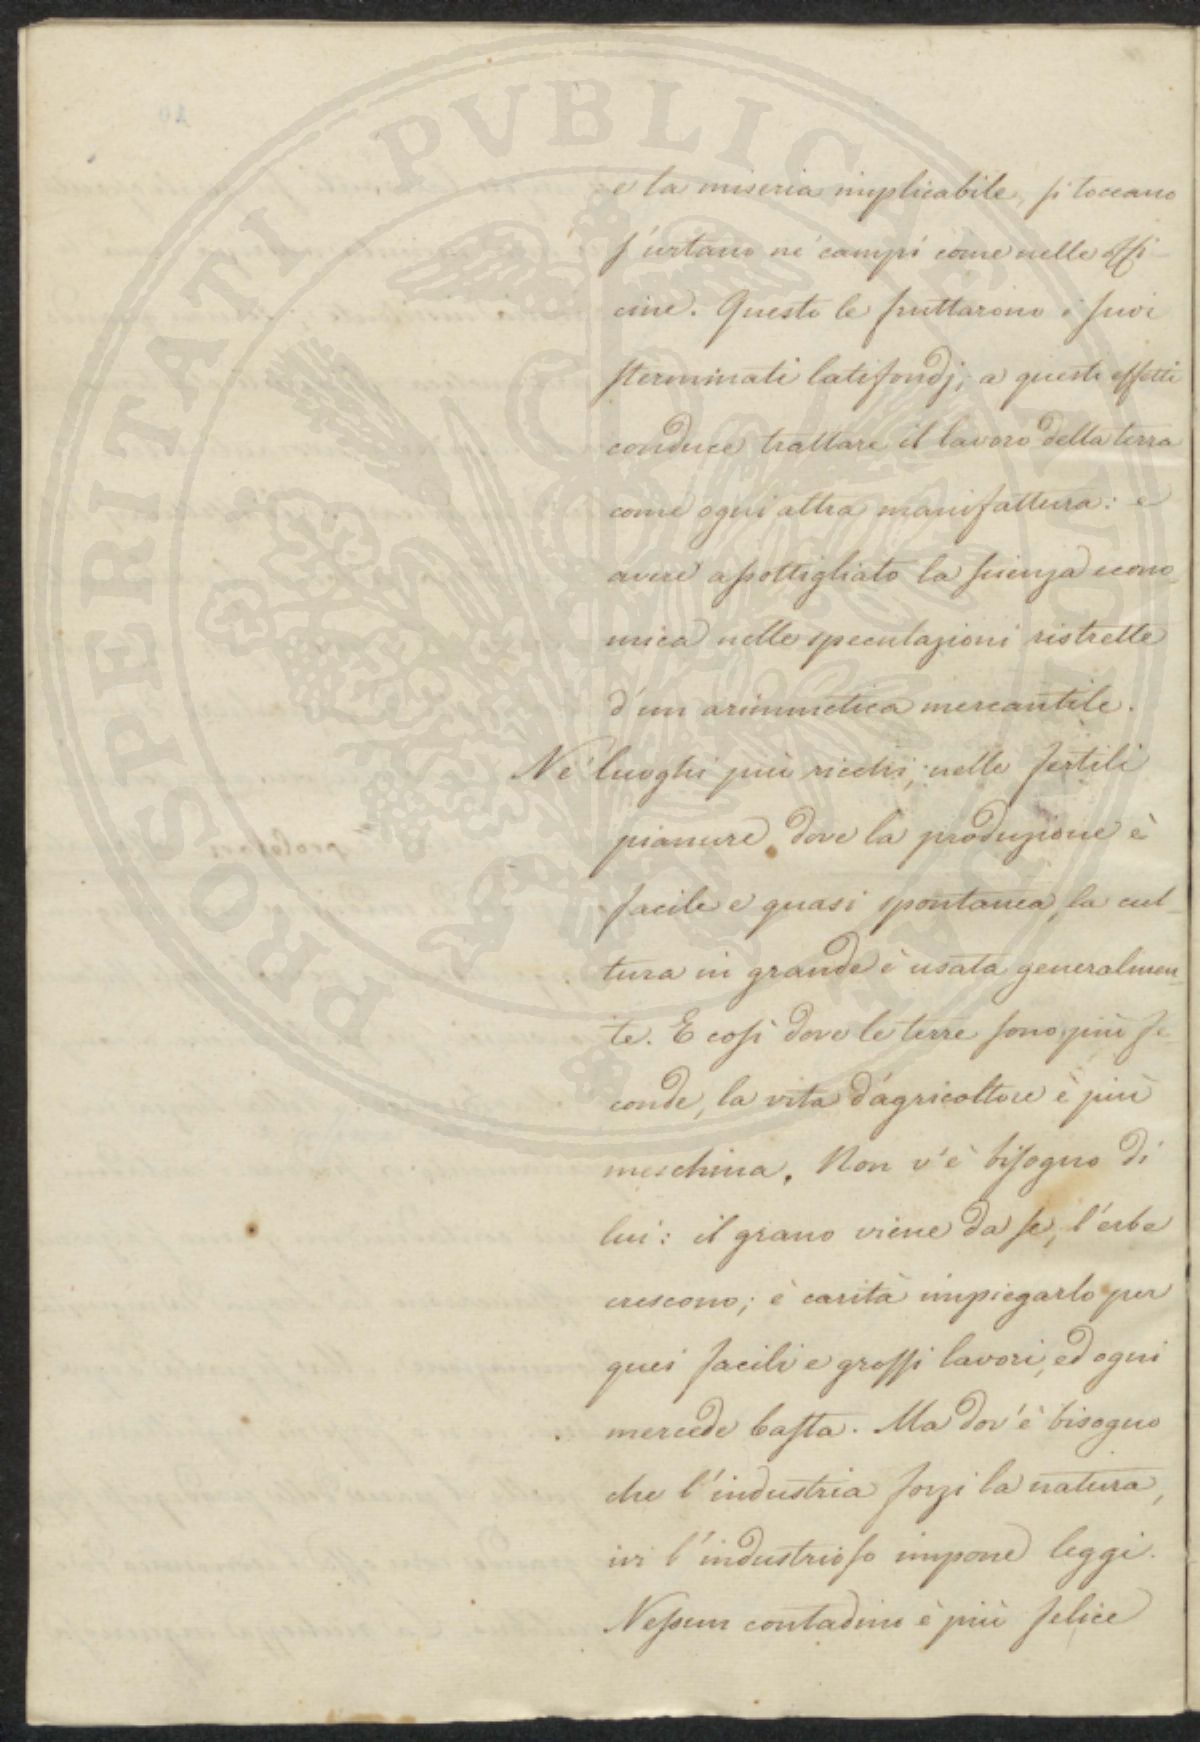 e la miseria inplicabile, si toccano
s'urtano ne' campi come nelle offi-
cine. Questo le fruttarono i suoi
sterminati latifondj; a questi effetti
conduce trattare il lavoro della terra
come ogni altra manifattura: e
avere assottigliato la scienza econo-
mica nelle speculazioni ristrette
d'un arimmetica mercantile.
Ne' luoghi più ricchi, nelle fertili
pianure, dove la produzione è
facile e quasi spontanea, la cul-
tura in grande è usata generalmen-
te. E così dove le terre sono più fe-
conde, la vita d'agricoltore è più
meschina. Non v'è bisogno di
lui: il grano viene da se, l'erbe
crescono; è carità impiegarlo per
quei facili e grossi lavori, ed ogni
mercede basta. Ma dov'è bisogno
che l'industria forzi la natura,
ivi l'industrioso impone leggi.
Nessun contadino è più felice
PROSPERITATI PVBLICAE